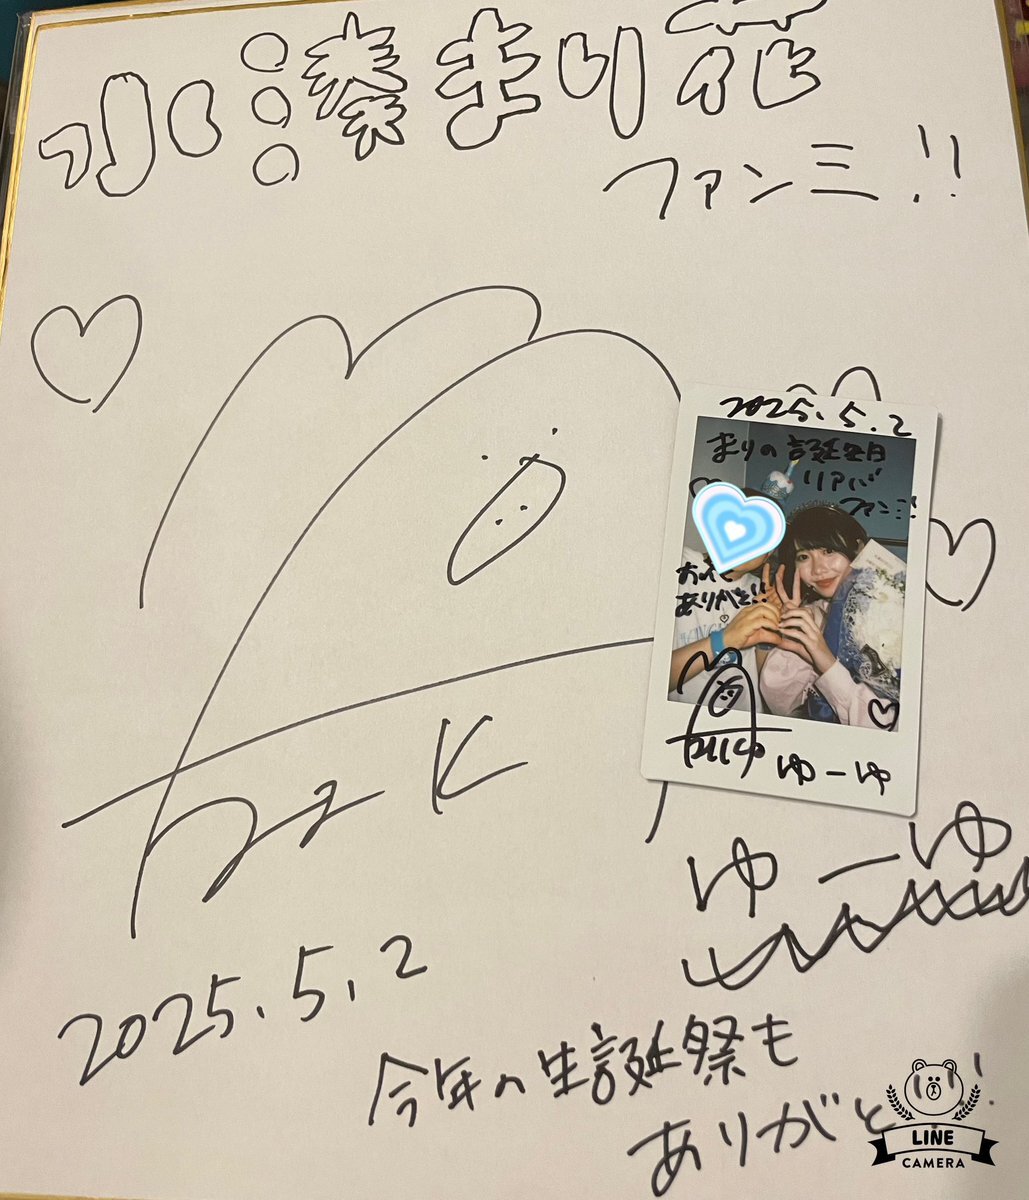 水湊まり花
ファン三!!
2025.5.2
まりの誕生日
リアバ
ファンミ!!
お花
ありがと!!
ゆーゆ
ゆーゆ
2025.5.2
今年の生誕祭も
ありがと!!
LINE
CAMERA